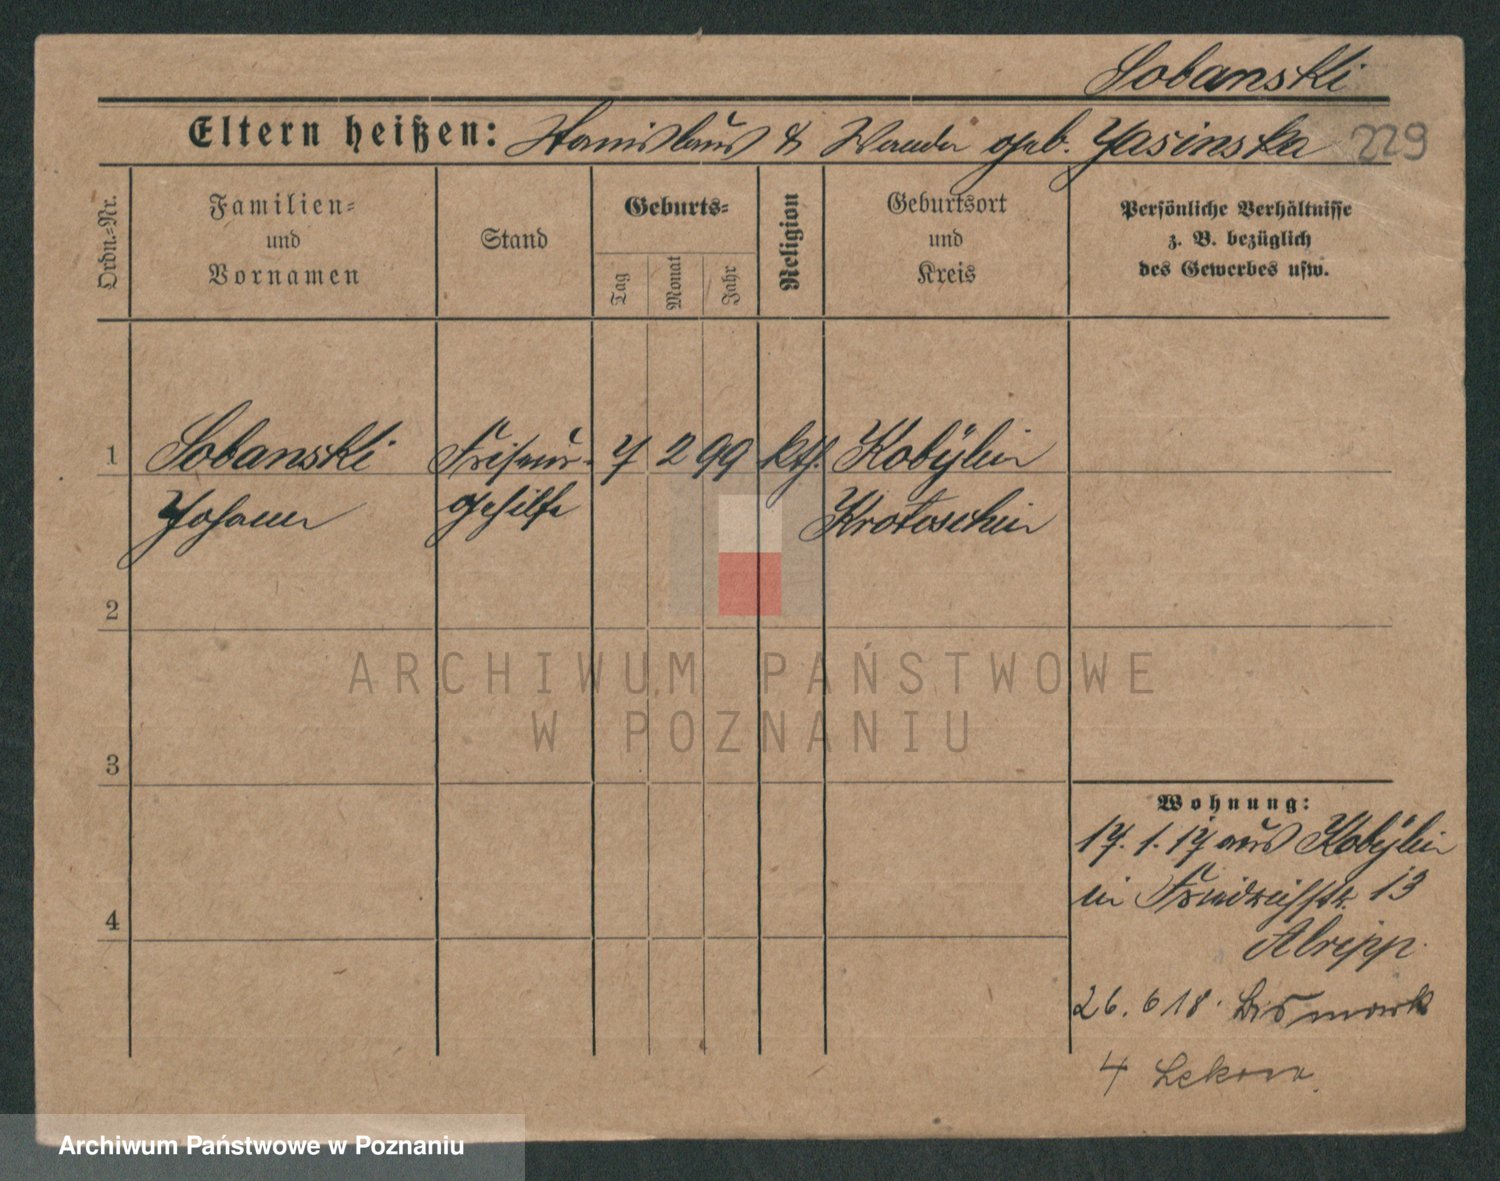 Sobanski
Eltern heißen: Stanislaus & Wanda geb. Jasinska 229
Ordn.-Nr.
Familien-
und
Vornamen
Stand
Geburts-
Tag
Monat
Jahr
Religion
Geburtsort
und
Kreis
Persönliche Verhältnisse
z. B. bezüglich
des Gewerbes usw.
1 Sobanski Friseur- 7 2 99 kth. Kobylin
Johann gehilfe Krotoschin
2
3
4
Wohnung:
17. 1. 17 aus Kobylin
in Friedrichstr. 13
26. 6 18. Bismark
4
ARCHIWUM PAŃSTWOWE
W POZNANIU
Archiwum Państwowe w Poznaniu